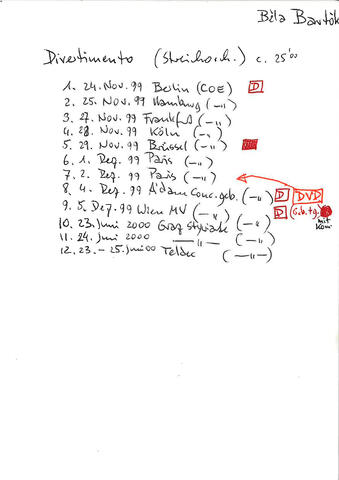 Béla Bartók
Divertimento (Streichorch.) c. 25'00
1. 24. Nov. 99 Berlin (COE) D
2. 25. Nov. 99 Hamburg (—"—)
3. 27. Nov. 99 Frankfurt (—"—)
4. 28. Nov. 99 Köln (—"—)
5. 29. Nov. 99 Brüssel (—"—)
6. 1. Dez. 99 Paris (—"—)
7. 2. Dez. 99 Paris (—"—)
8. 4. Dez. 99 A'dam Conc.geb. (—"—) D DVD
9. 5. Dez. 99 Wien MV (—"—) D (G.b.tg.
mit
10. 23. Juni 2000 Graz Styriarte (—"—)
11. 24. Juni 2000 —"— (—"—)
12. 23. – 25. Juni 00 Teldec (—"—)